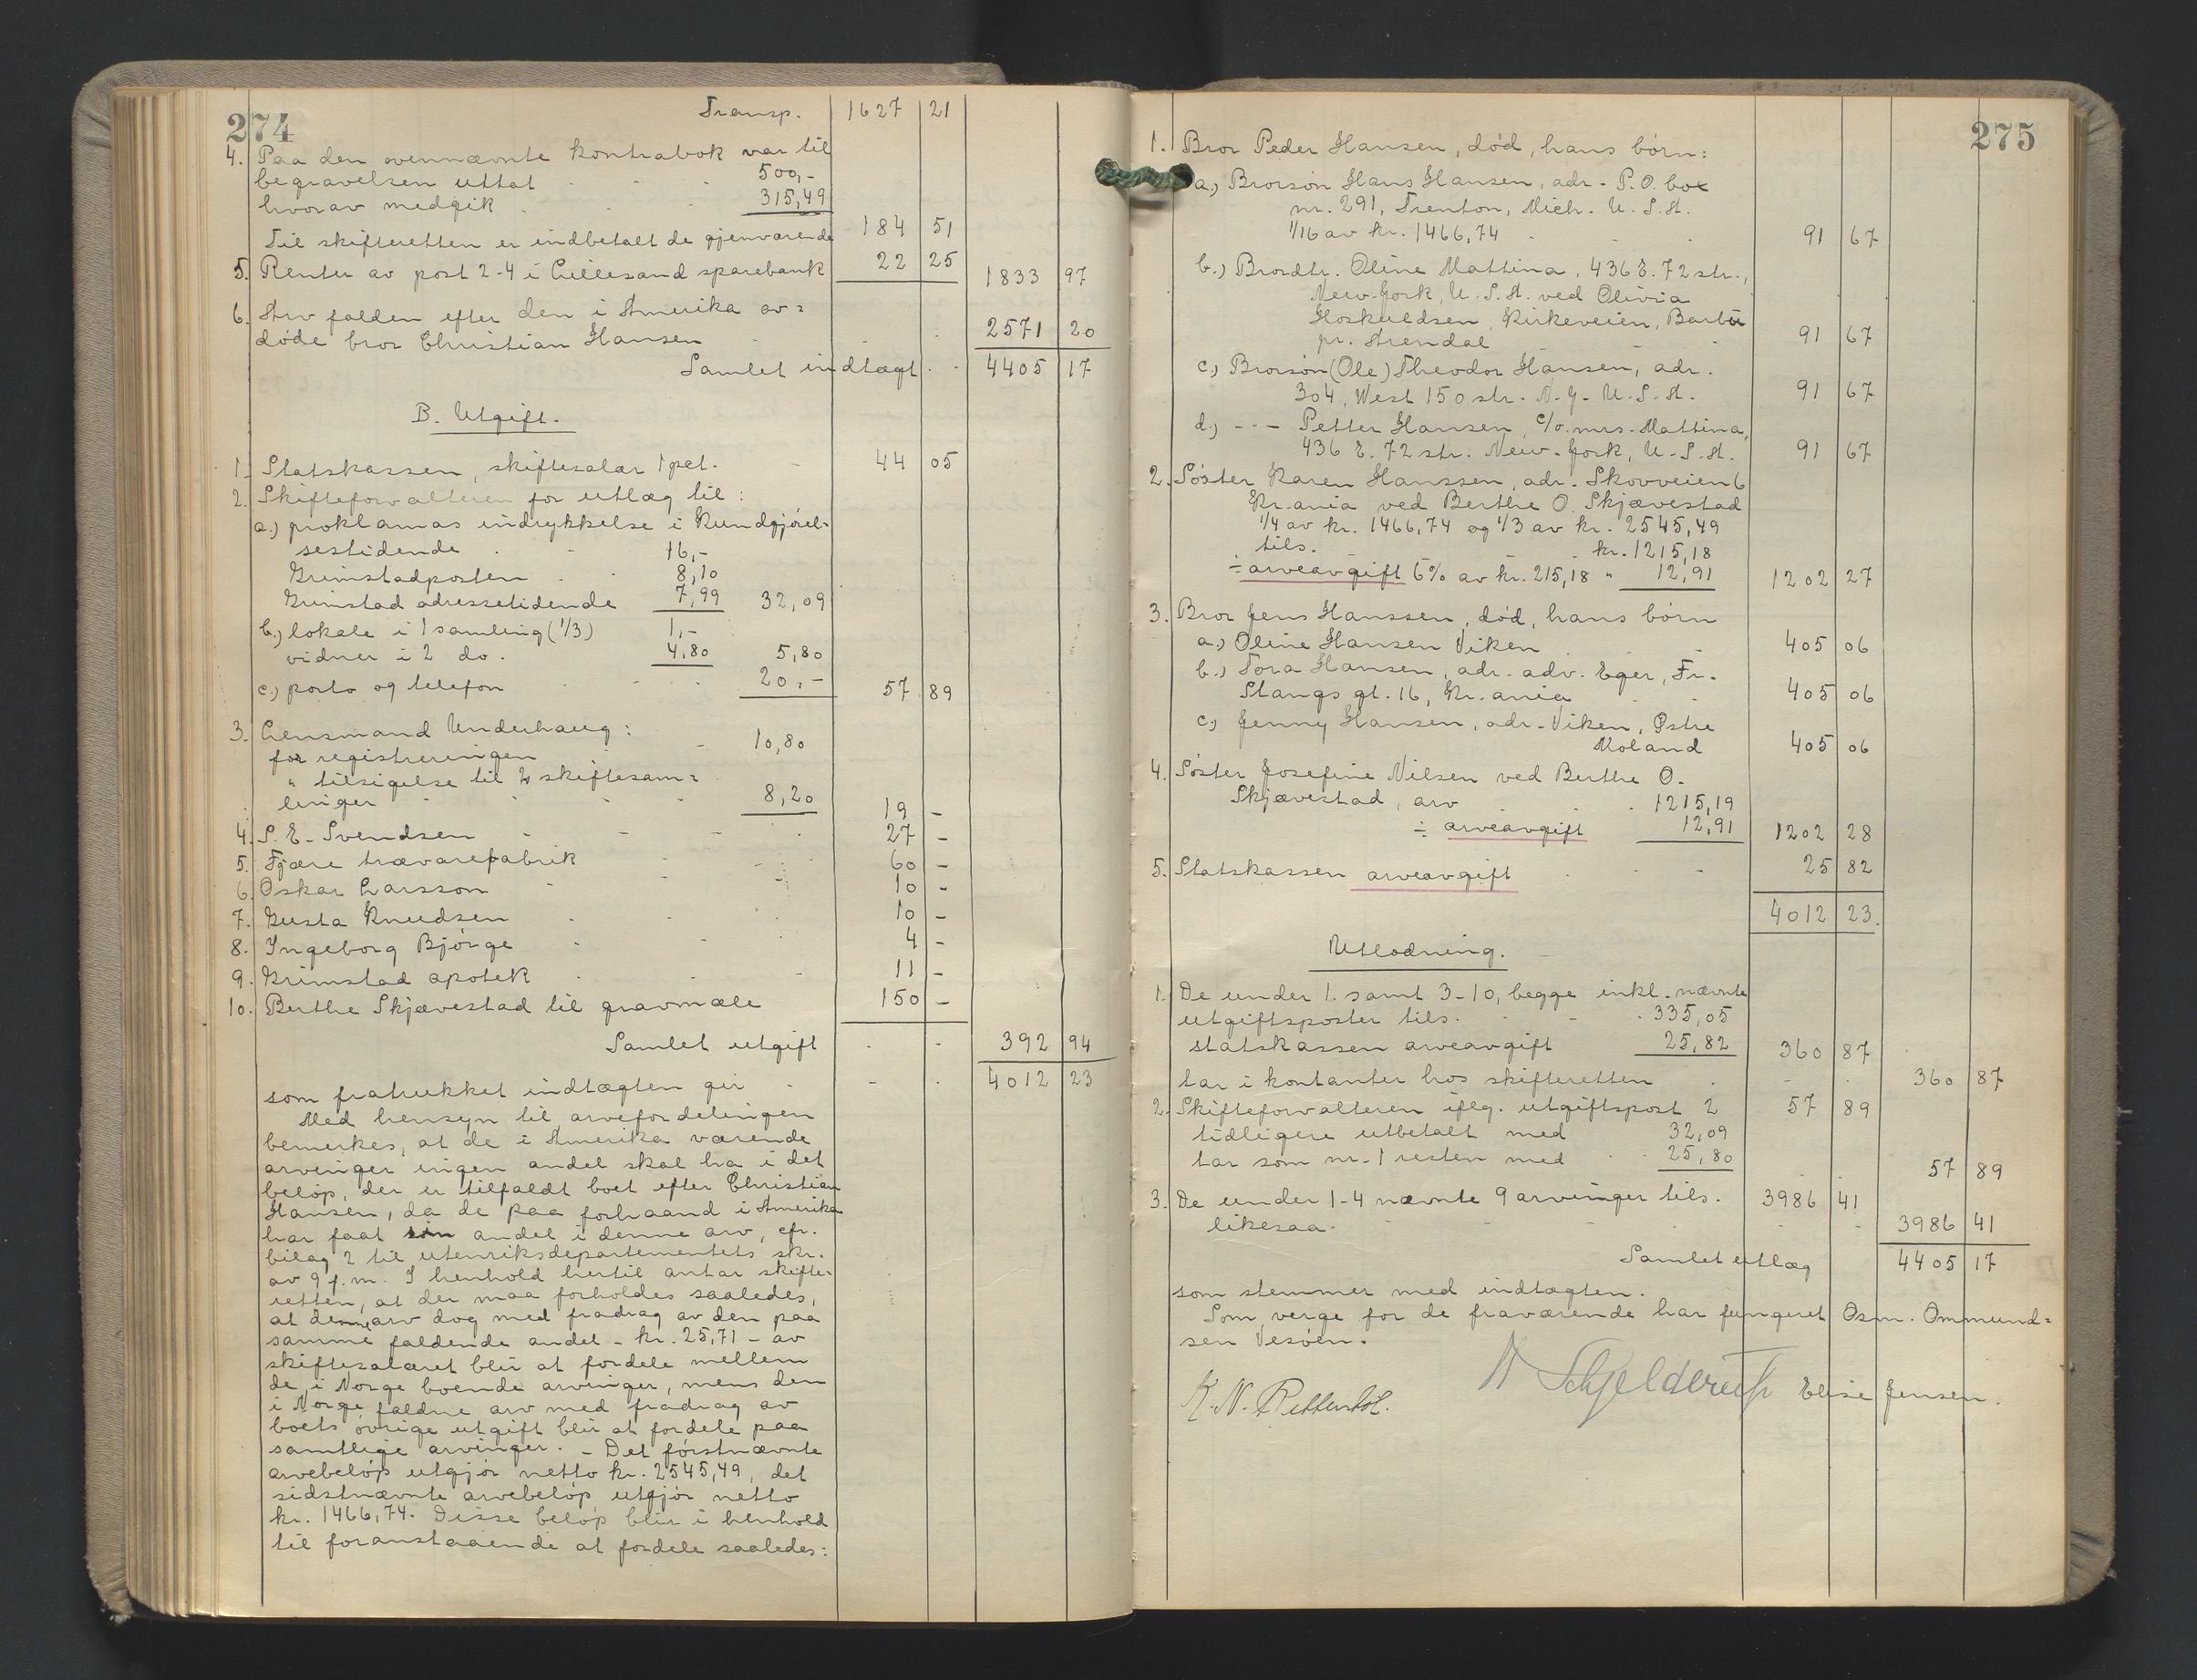 274
Transp. 1627 21
4. Paa den ovennævnte kontrabok var til
begravelsen uttat 500,-
hvorav medgik 315,49
Til skifteretten er indbetalt de gjenværende 184 51
5. Renter av post 2-4 i Lillesand sparebank 22 25 1833 97
6. Arv falden efter den i Amerika av=
døde bror Christian Hansen 2571 20
Samlet indtægt 4405 17
B. Utgift.
1. Statskassen, skiftesalær 1 pct. 44 05
2. Skifteforvalteren for utlæg til:
a.) proklamas indrykkelse i Kundgjørel=
sestidende 16,-
Grimstadposten 8,10
Grimstad adressetidende 7,99 32,09
b.) lokale i 1 samling (1/3) 1,-
vidner i 2 do. 4,80 5,80
c.) porto og telefon 20,- 57 89
3. Lensmand Underhaug:
for registreringen 10,80
" tilsigelse til 2 skiftesam=
linger 8,20 19 -
4. S. E. Svendsen 27 -
5. Fjære trævarefabrik 60 -
6. Oskar Larsson 10 -
7. Gusta Knudsen 10 -
8. Ingeborg Bjørge 4 -
9. Grimstad apotek 11 -
10. Berthe Skjævestad til gravmæle 150 -
Samlet utgift 392 94
som fratrukket indtægten gir 4012 23
Med hensyn til arvefordelingen
bemerkes, at de i Amerika værende
arvinger ingen andel skal ha i det
beløp, der er tilfaldt boet efter Christian
Hansen, da de paa forhaand i Amerika
har faat sin andel i denne arv, cfr.
bilag 2 til utenriksdepartementets skr.
av 9 f.m. I henhold hertil antar skifte=
retten, at der maa forholdes saaledes,
at denne arv dog med fradrag av den paa
samme faldende andel - kr. 25,71 - av
skiftesalæret blir at fordele mellem
de i Norge boende arvinger, mens den
i Norge faldne arv med fradrag av
boets øvrige utgift blir at fordele paa
samtlige arvinger. - Det førstnævnte
arvebeløp utgjør netto kr. 2545,49, det
sidstnævnte arvebeløp utgjør netto
kr. 1466,74. Disse beløp blir i henhold
til foranstaaende at fordele saaledes:
275
1. Bror Peder Hansen, død, hans børn:
a.) Brorsøn Hans Hansen, adr. P.O. box
nr. 291, Trenton, Mich. U.S.A.
1/16 av kr. 1466,74 91 67
b.) Brordtr. Oline Mattina, 436 E. 72 str.,
New-York, U.S.A. ved Olivia
Hoskuldsen, Kirkeveien, Barbu
pr. Arendal 91 67
c.) Brorsøn (Ole) Theodor Hansen, adr.
304, West 150 str. N.Y. U.S.A. 91 67
d.) - - - Petter Hansen, c/o. mrs. Mattina,
436 E. 72 str. New-York, U.S.A. 91 67
2. Søster Karen Hanssen, adr. Skovveien 6
Kr.ania ved Berthe O. Skjævestad
1/4 av kr. 1466,74 og 1/3 av kr. 2545,49
tils. kr. 1215,18
÷ arveavgift 6% av kr. 215,18 " 12,91 1202 27
3. Bror Jens Hanssen, død, hans børn
a.) Oline Hansen Viken 405 06
b.) Tora Hansen, adr. adv. Eger, Fr.
Stangs gt. 16, Kr.ania 405 06
c.) Jenny Hansen, adr. Viken, Østre
Moland 405 06
4. Søster Josefine Nilsen ved Berthe O.
Skjævestad, arv 1215,19
÷ arveavgift 12,91 1202 28
5. Statskassen arveavgift 25 82
4012 23.
Utlodning.
1. De under 1. samt 3-10, begge inkl. nævnte
utgiftsposter tils. 335,05
statskassen arveavgift 25,82 360 87
tar i kontanter hos skifteretten 360 87
2. Skifteforvalteren iflg. utgiftspost 2 57 89
tidligere utbetalt med 32,09
tar som nr. 1 resten med 25,80 57 89
3. De under 1-4 nævnte 9 arvinger tils. 3986 41
likesaa. 3986 41
Samlet utlæg 4405 17
som stemmer med indtægten.
Som verge for de fraværende har fungeret Osm. Ommund=
sen Vesøen.
K. N. Pettersbøl. Schjelderup Elise Jensen.